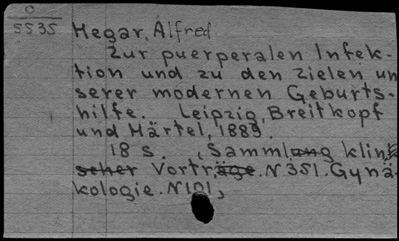 C
5535
Hegar, Alfred
Zur puerperalen Infek-
tion und zu den Zielen un
serer modernen Geburts-
hilfe. Leipzig, Breitkopf
und Härtel, 1889.
18 s. , Sammlung klin
scher Vorträge. N 351. Gynä-
kologie. N 101,